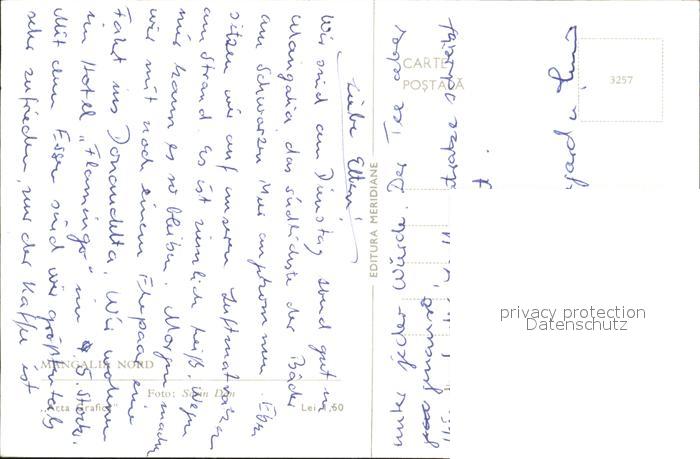 Liebe Eltern!
Wir sind am Dienstag abend gut in
Mangalia, das südlichste der Bäder
am Schwarzen Meer angekommen. Eben
sitzen wir auf unseren Luftmatratzen
am Strand. Es ist ziemlich heiß. Wegen
mir kann es so bleiben. Morgen machen
wir mit noch einem Ehepaar eine
Fahrt ins Donaudelta. Wir wohnen
im Hotel „Flamingo" im 5. Stock.
Mit dem Essen sind wir größtenteils
sehr zufrieden, nur der Kaffee ist
unter jeder Würde. Der Tee oder
genannt
CARTE
POȘTALĂ
3257
EDITURA MERIDIANE
MANGALIA NORD
Foto: Dan
„Arta Grafică" Lei 1,60
privacy protection
Datenschutz